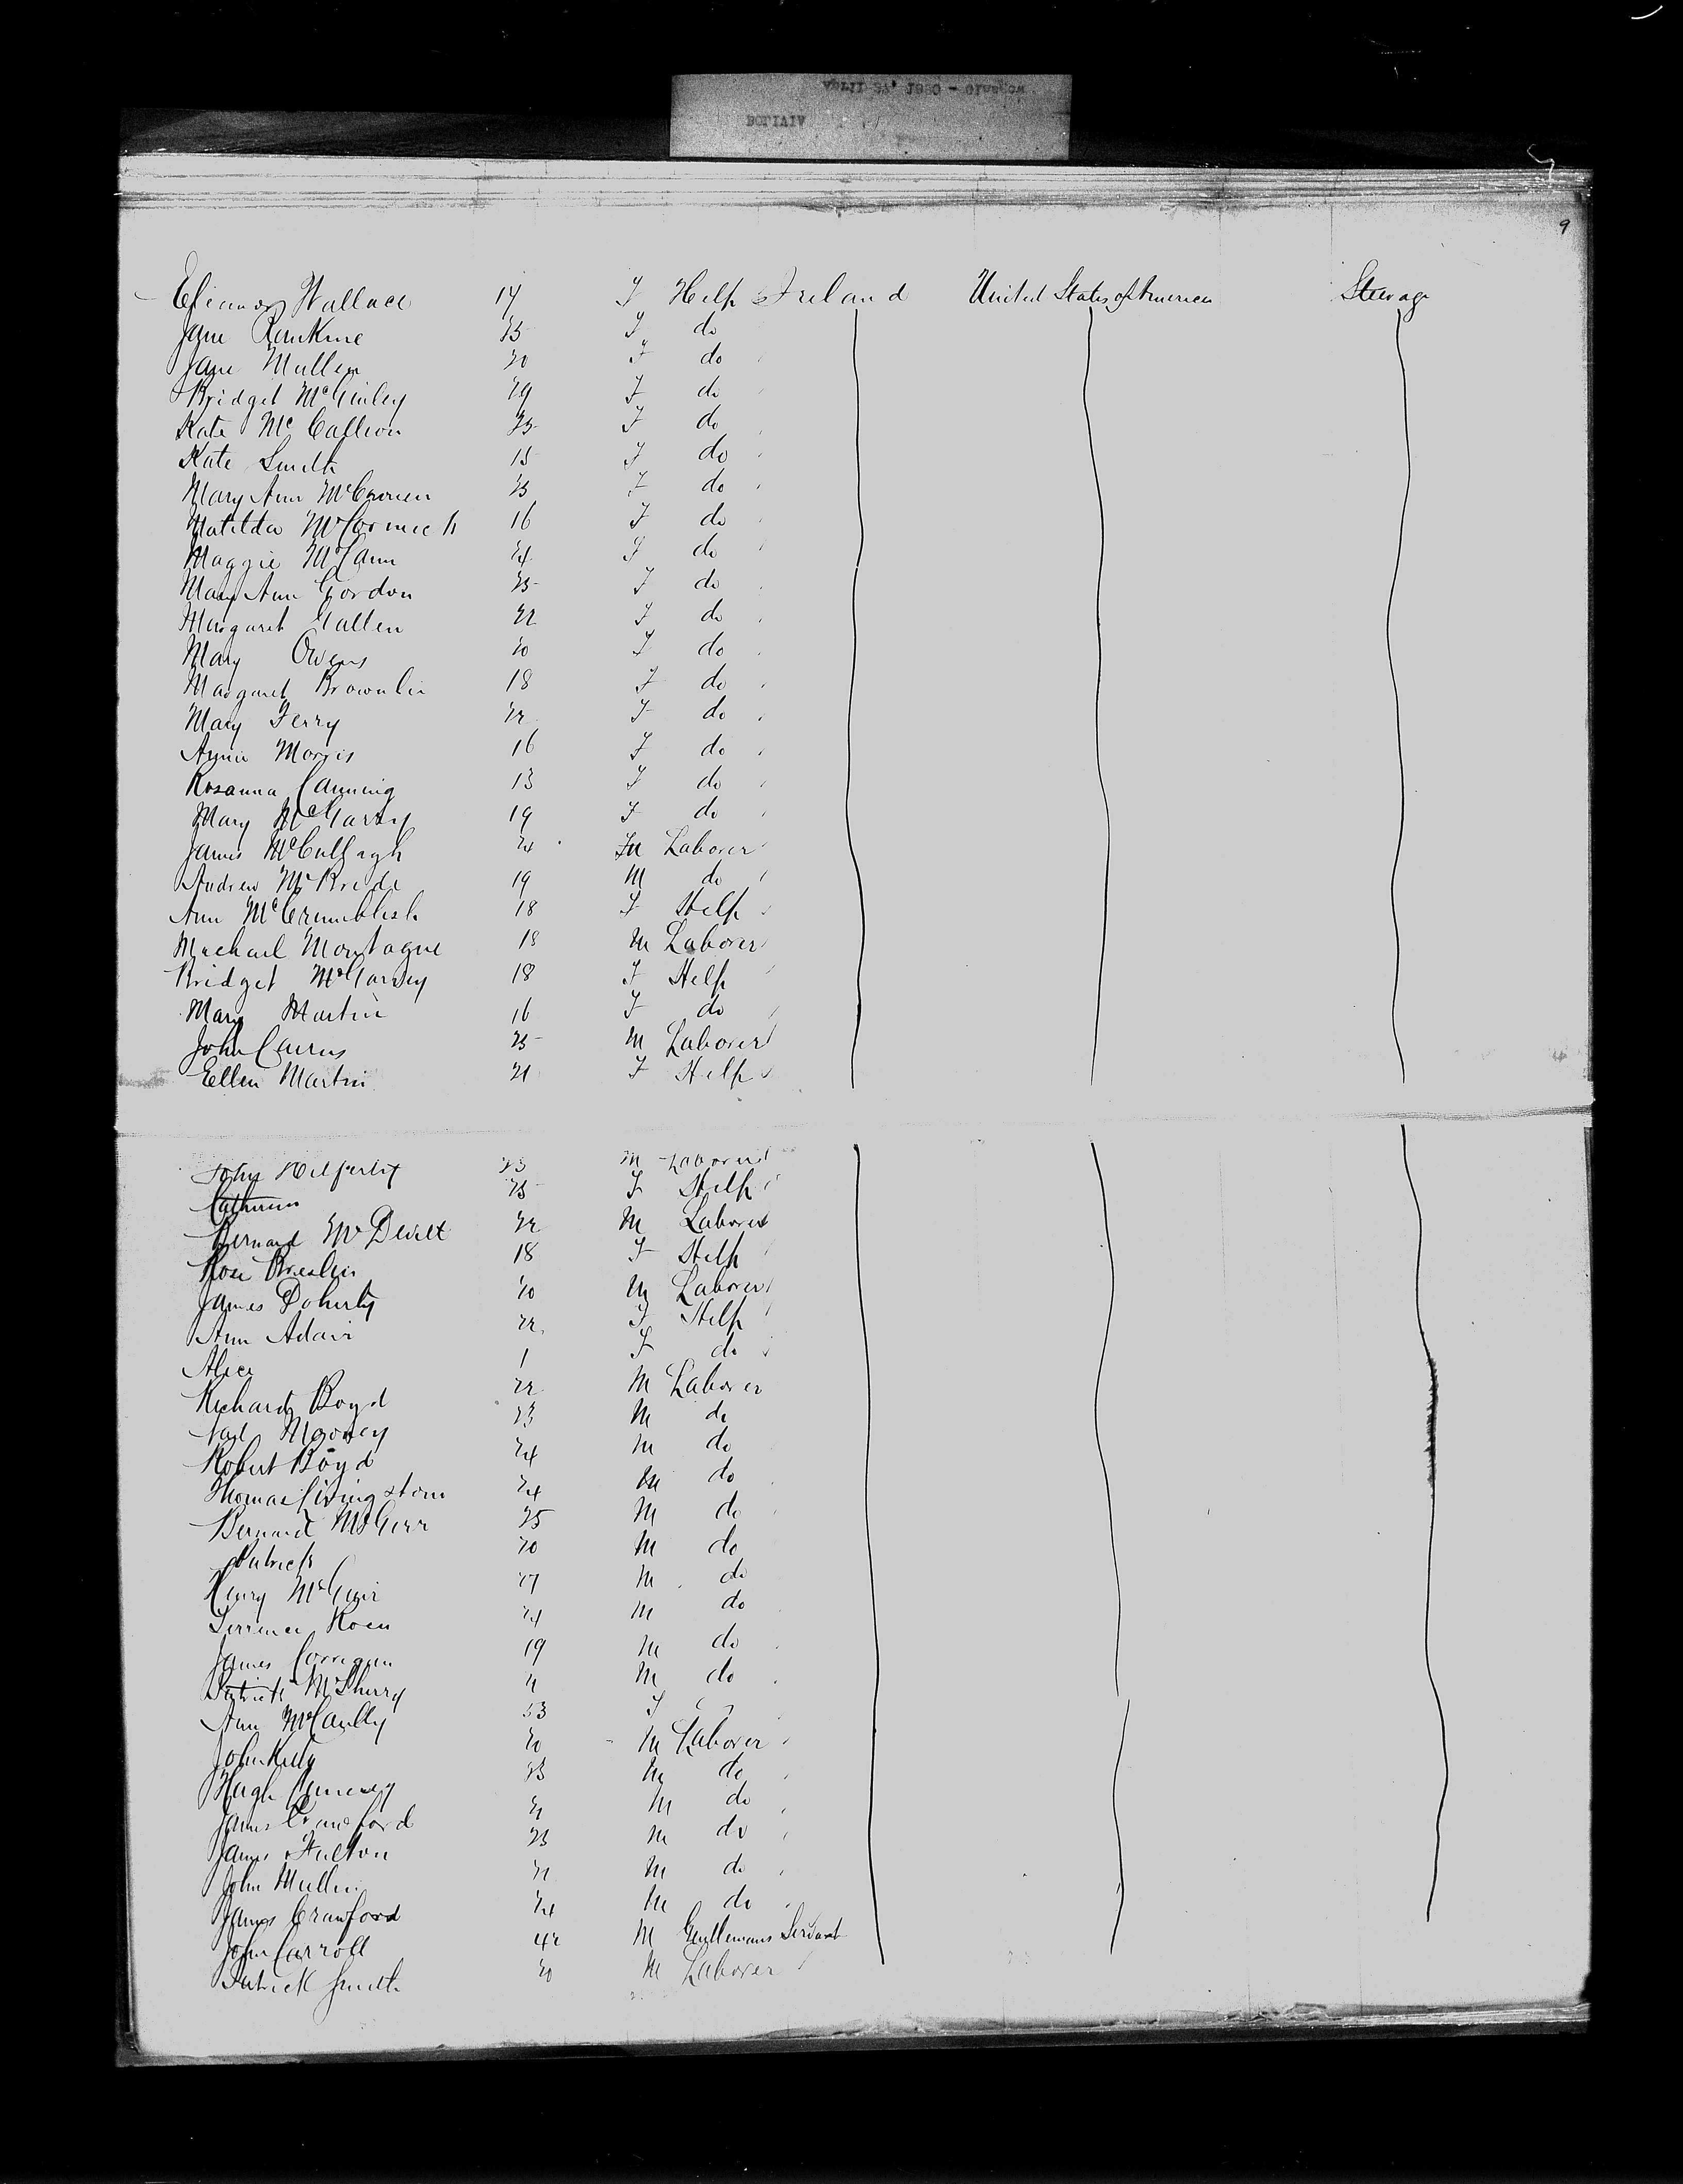 April 27, 1880 - Glasgow
BOLIVIA
9
Eleanor Wallace 14 F Help Ireland United States of America Steerage
Jane Rankine 25 F do
Jane Mullen 20 F do
Bridget McGinley 29 F do
Kate McCallion 25 F do
Kate Smith 15 F do
Mary Ann 23 F do
Matilda McCormick 16 F do
Maggie McCann 24 F do
Mary Ann Gordon 25 F do
Margaret Gallen 22 F do
Mary Owens 20 F do
Margaret Brownlie 18 F do
Mary Ferry 22 F do
Annie Morris 16 F do
Rosanna Canning 13 F do
Mary McGarvey 19 F do
James McCullagh 24 M Laborer
Andrew McBride 19 M do
Ann McCrumblish 18 F Help
Michael Montague 18 M Laborer
Bridget McGarvey 18 F Help
Mary Martin 16 F do
John Cairns 25 M Laborer
Ellen Martin 21 F Help
John 23 M Laborer
Catherine 25 F Help
Bernard McDevitt 22 M Laborer
Rose Breslin 18 F Help
James Doherty 20 M Laborer
Ann Adair 22 F Help
Alice 1 F do
Richard Boyd 22 M Laborer
Neil Mooney 23 M do
Robert Boyd 24 M do
Thomas Livingstone 24 M do
Bernard McGirr 25 M do
Patrick 20 M do
Henry McGuir 27 M do
Terrence 24 M do
James Corrigan 19 M do
Patrick McSherry 21 M do
Ann McCaully 53 F
John Kelly 20 M Laborer
Hugh 23 M do
James Crawford 21 M do
James Fulton 23 M do
John Mullin 21 M do
James Crawford 24 M do
John Carroll 42 M Gentlemans Servant
Patrick Smith 20 M Laborer